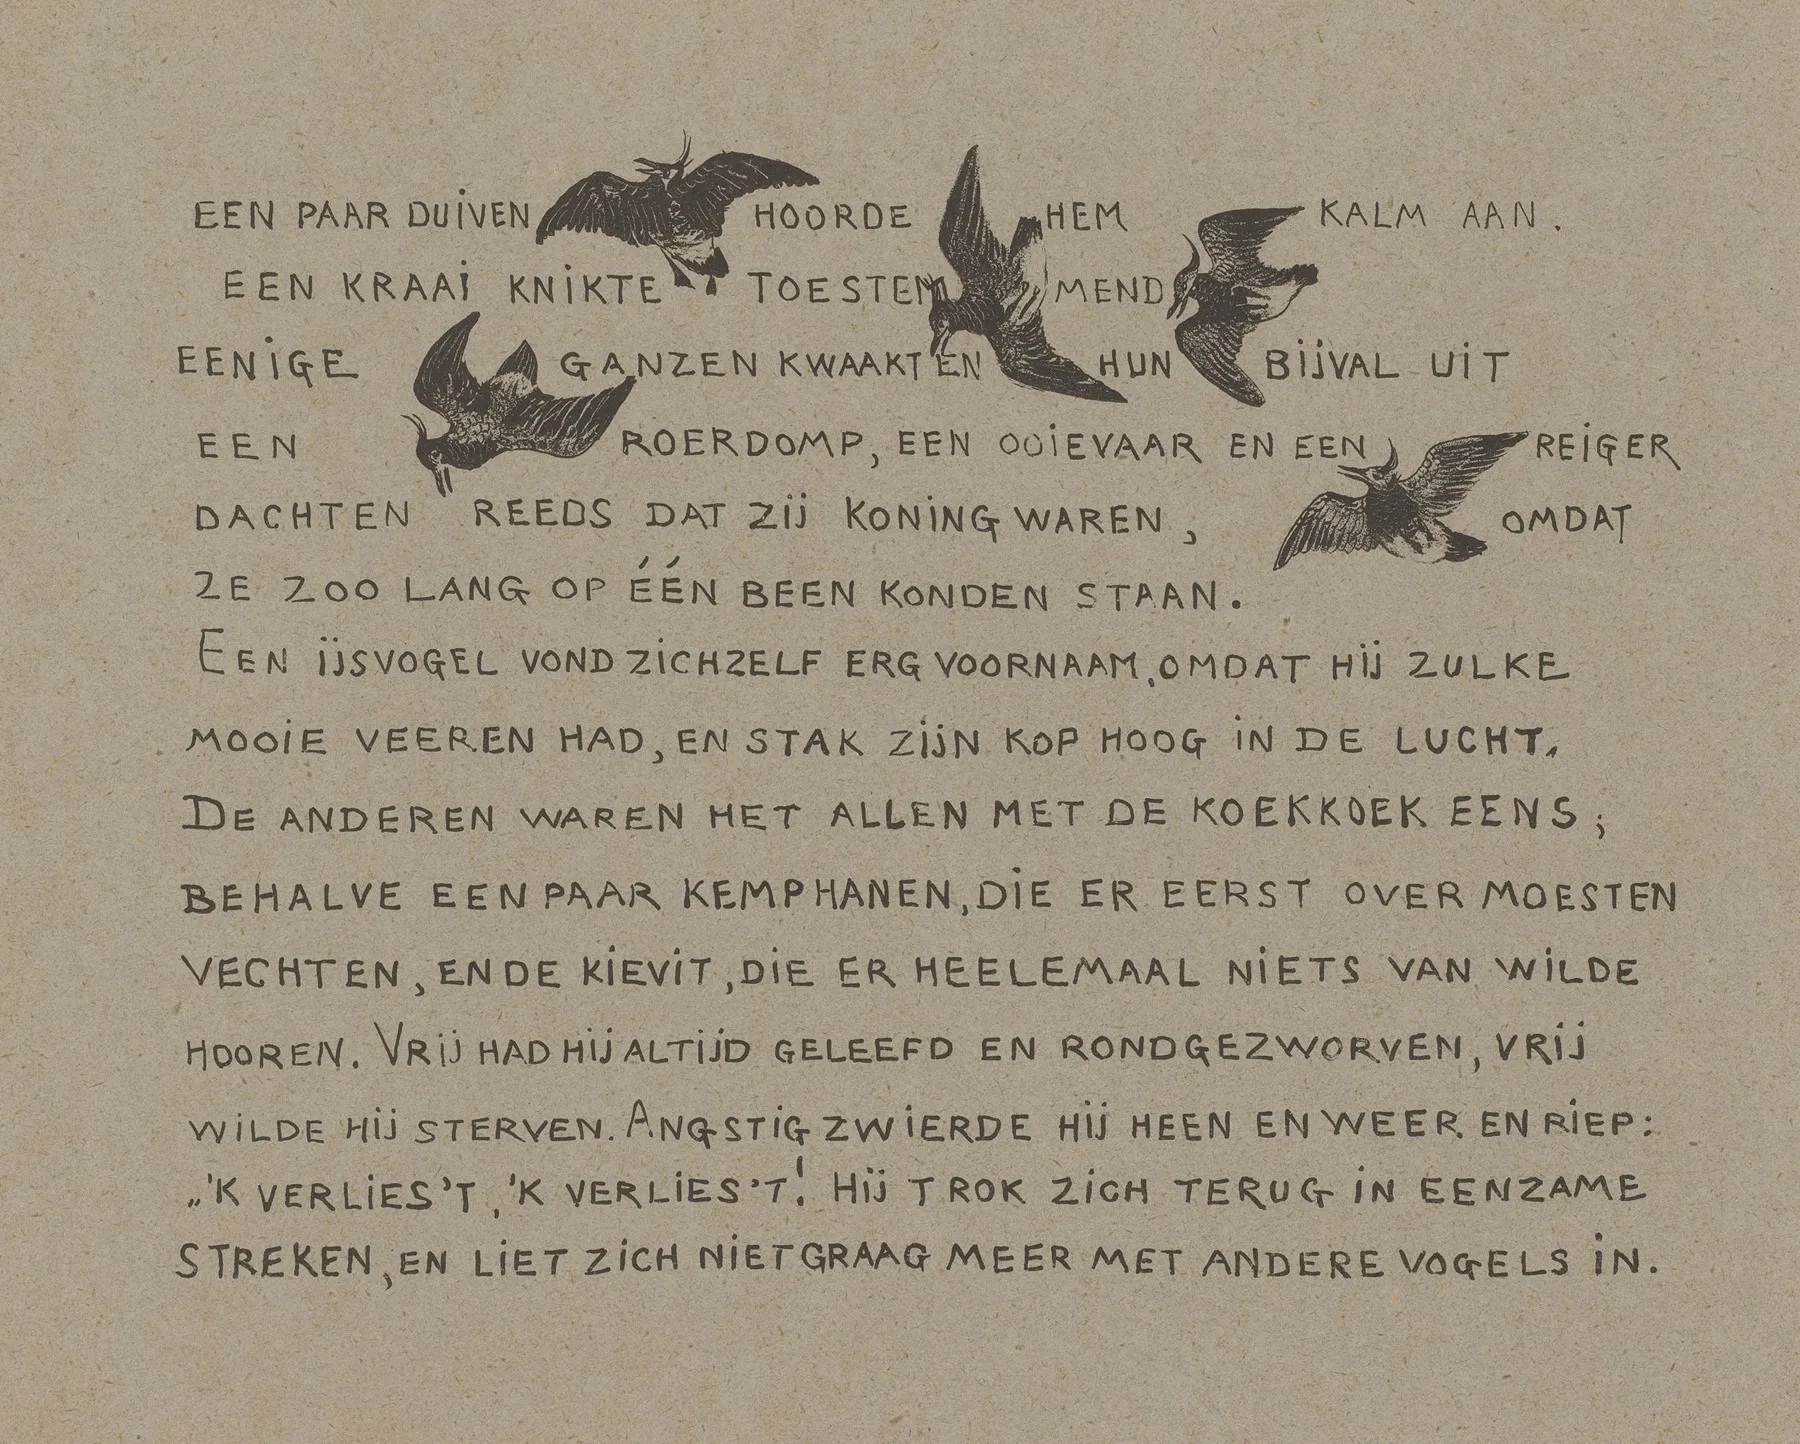 EEN PAAR DUIVEN HOORDE HEM KALM AAN.
EEN KRAAI KNIKTE TOESTEMMEND
EENIGE GANZEN KWAAKTEN HUN BIJVAL UIT
EEN ROERDOMP, EEN OOIEVAAR EN EEN REIGER
DACHTEN REEDS DAT ZIJ KONING WAREN, OMDAT
ZE ZOO LANG OP ÉÉN BEEN KONDEN STAAN.
EEN IJSVOGEL VOND ZICHZELF ERG VOORNAAM, OMDAT HIJ ZULKE
MOOIE VEEREN HAD, EN STAK ZIJN KOP HOOG IN DE LUCHT.
DE ANDEREN WAREN HET ALLEN MET DE KOEKKOEK EENS;
BEHALVE EEN PAAR KEMPHANEN, DIE ER EERST OVER MOESTEN
VECHTEN, EN DE KIEVIT, DIE ER HEELEMAAL NIETS VAN WILDE
HOOREN. VRIJ HAD HIJ ALTIJD GELEEFD EN RONDGEZWORVEN, VRIJ
WILDE HIJ STERVEN. ANGSTIG ZWIERDE HIJ HEEN EN WEER EN RIEP:
„'K VERLIES'T, 'K VERLIES'T! HIJ TROK ZICH TERUG IN EENZAME
STREKEN, EN LIET ZICH NIET GRAAG MEER MET ANDERE VOGELS IN.